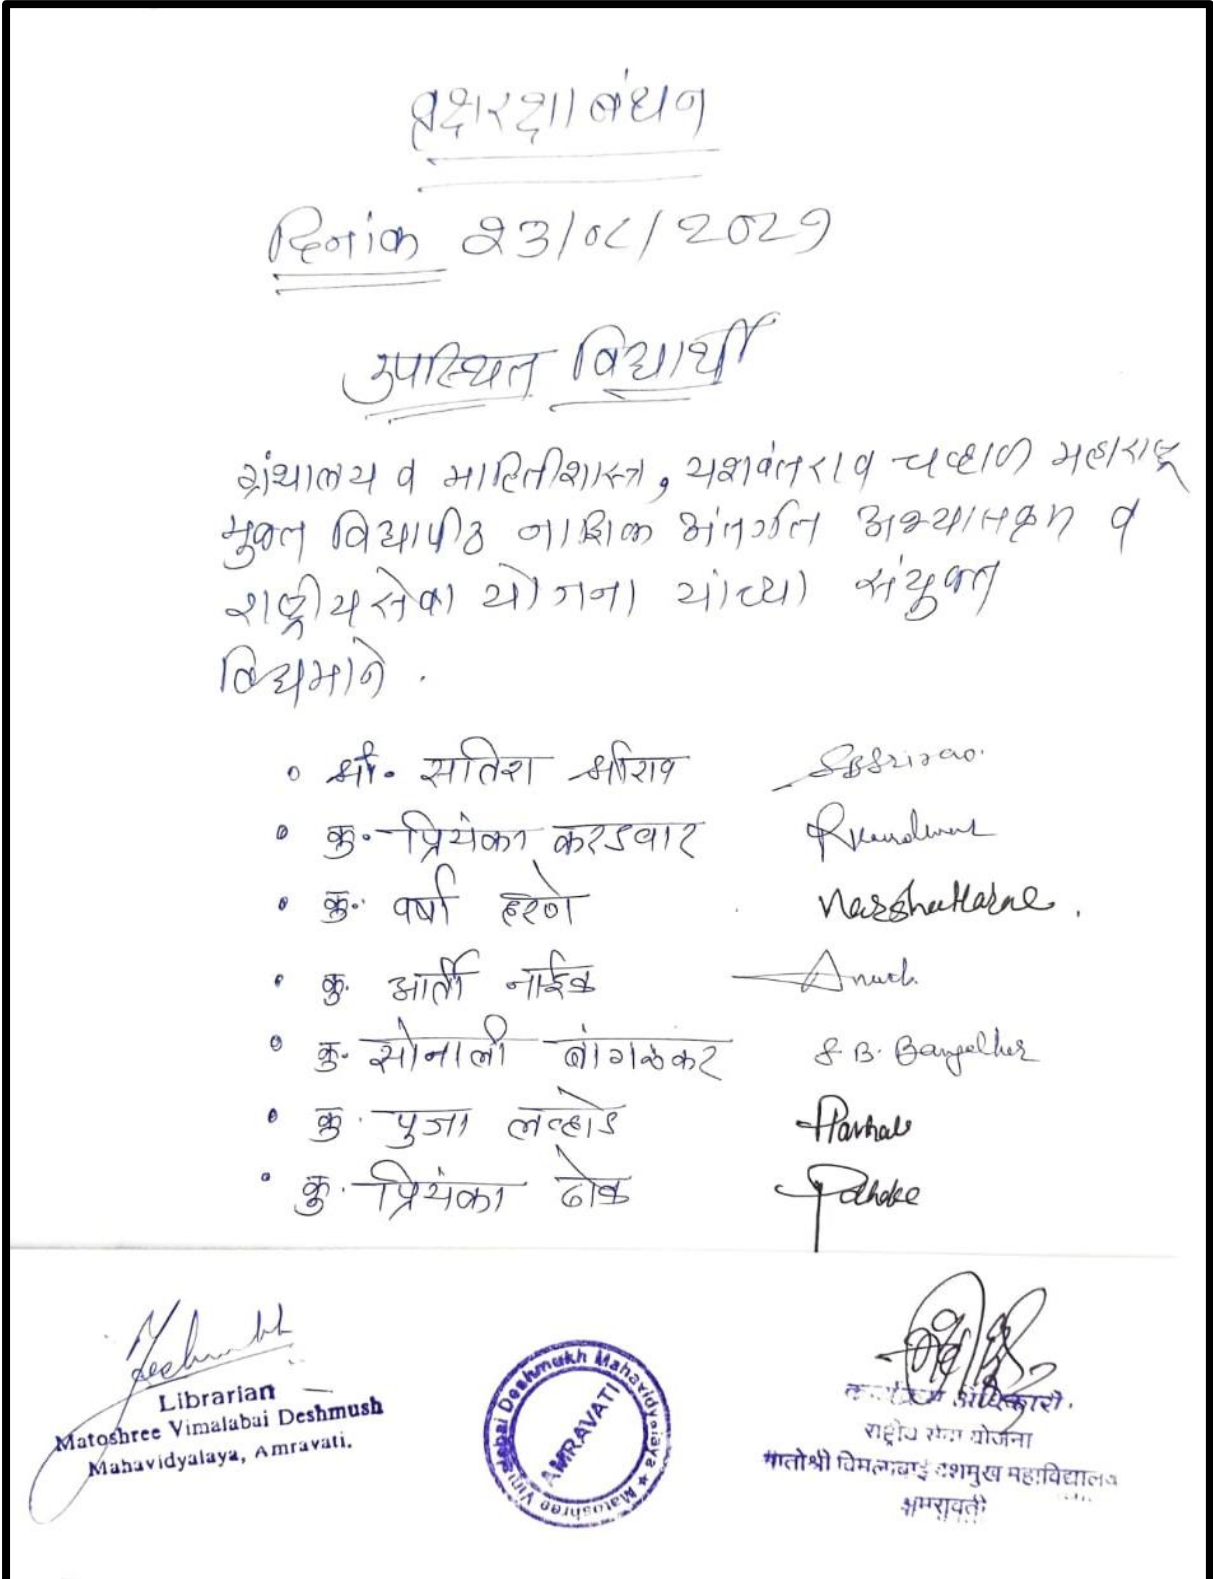 वृक्षरक्षाबंधन
दिनांक २३/०८/२०२१
उपस्थित विद्यार्थी
ग्रंथालय व माहितीशास्त्र, यशवंतराव चव्हाण महाराष्ट्र
मुक्त विद्यापीठ नाशिक अंतर्गत अभ्यासक्रम व
राष्ट्रीय सेवा योजना यांच्या संयुक्त
विद्यमाने .
श्री. सतिश श्रीराव SBSrirao.
कु. प्रियंका करडवार
कु. वर्षा हरणे Varsha Harne.
कु. आर्ती नाईक
कु. सोनाली बांगळकर S. B. Bangalker
कु. पुजा लव्हाडे
कु. प्रियंका ढोके Pdhoke
Deshmukh
Librarian
Matoshree Vimalabai Deshmush
Mahavidyalaya, Amravati.
Matoshree Vimalabai Deshmukh Mahavidyalaya ★
AMRAVATI
कार्यक्रम अधिकारी.
राष्ट्रीय सेवा योजना
मातोश्री विमलाबाई देशमुख महाविद्यालय
अमरावती